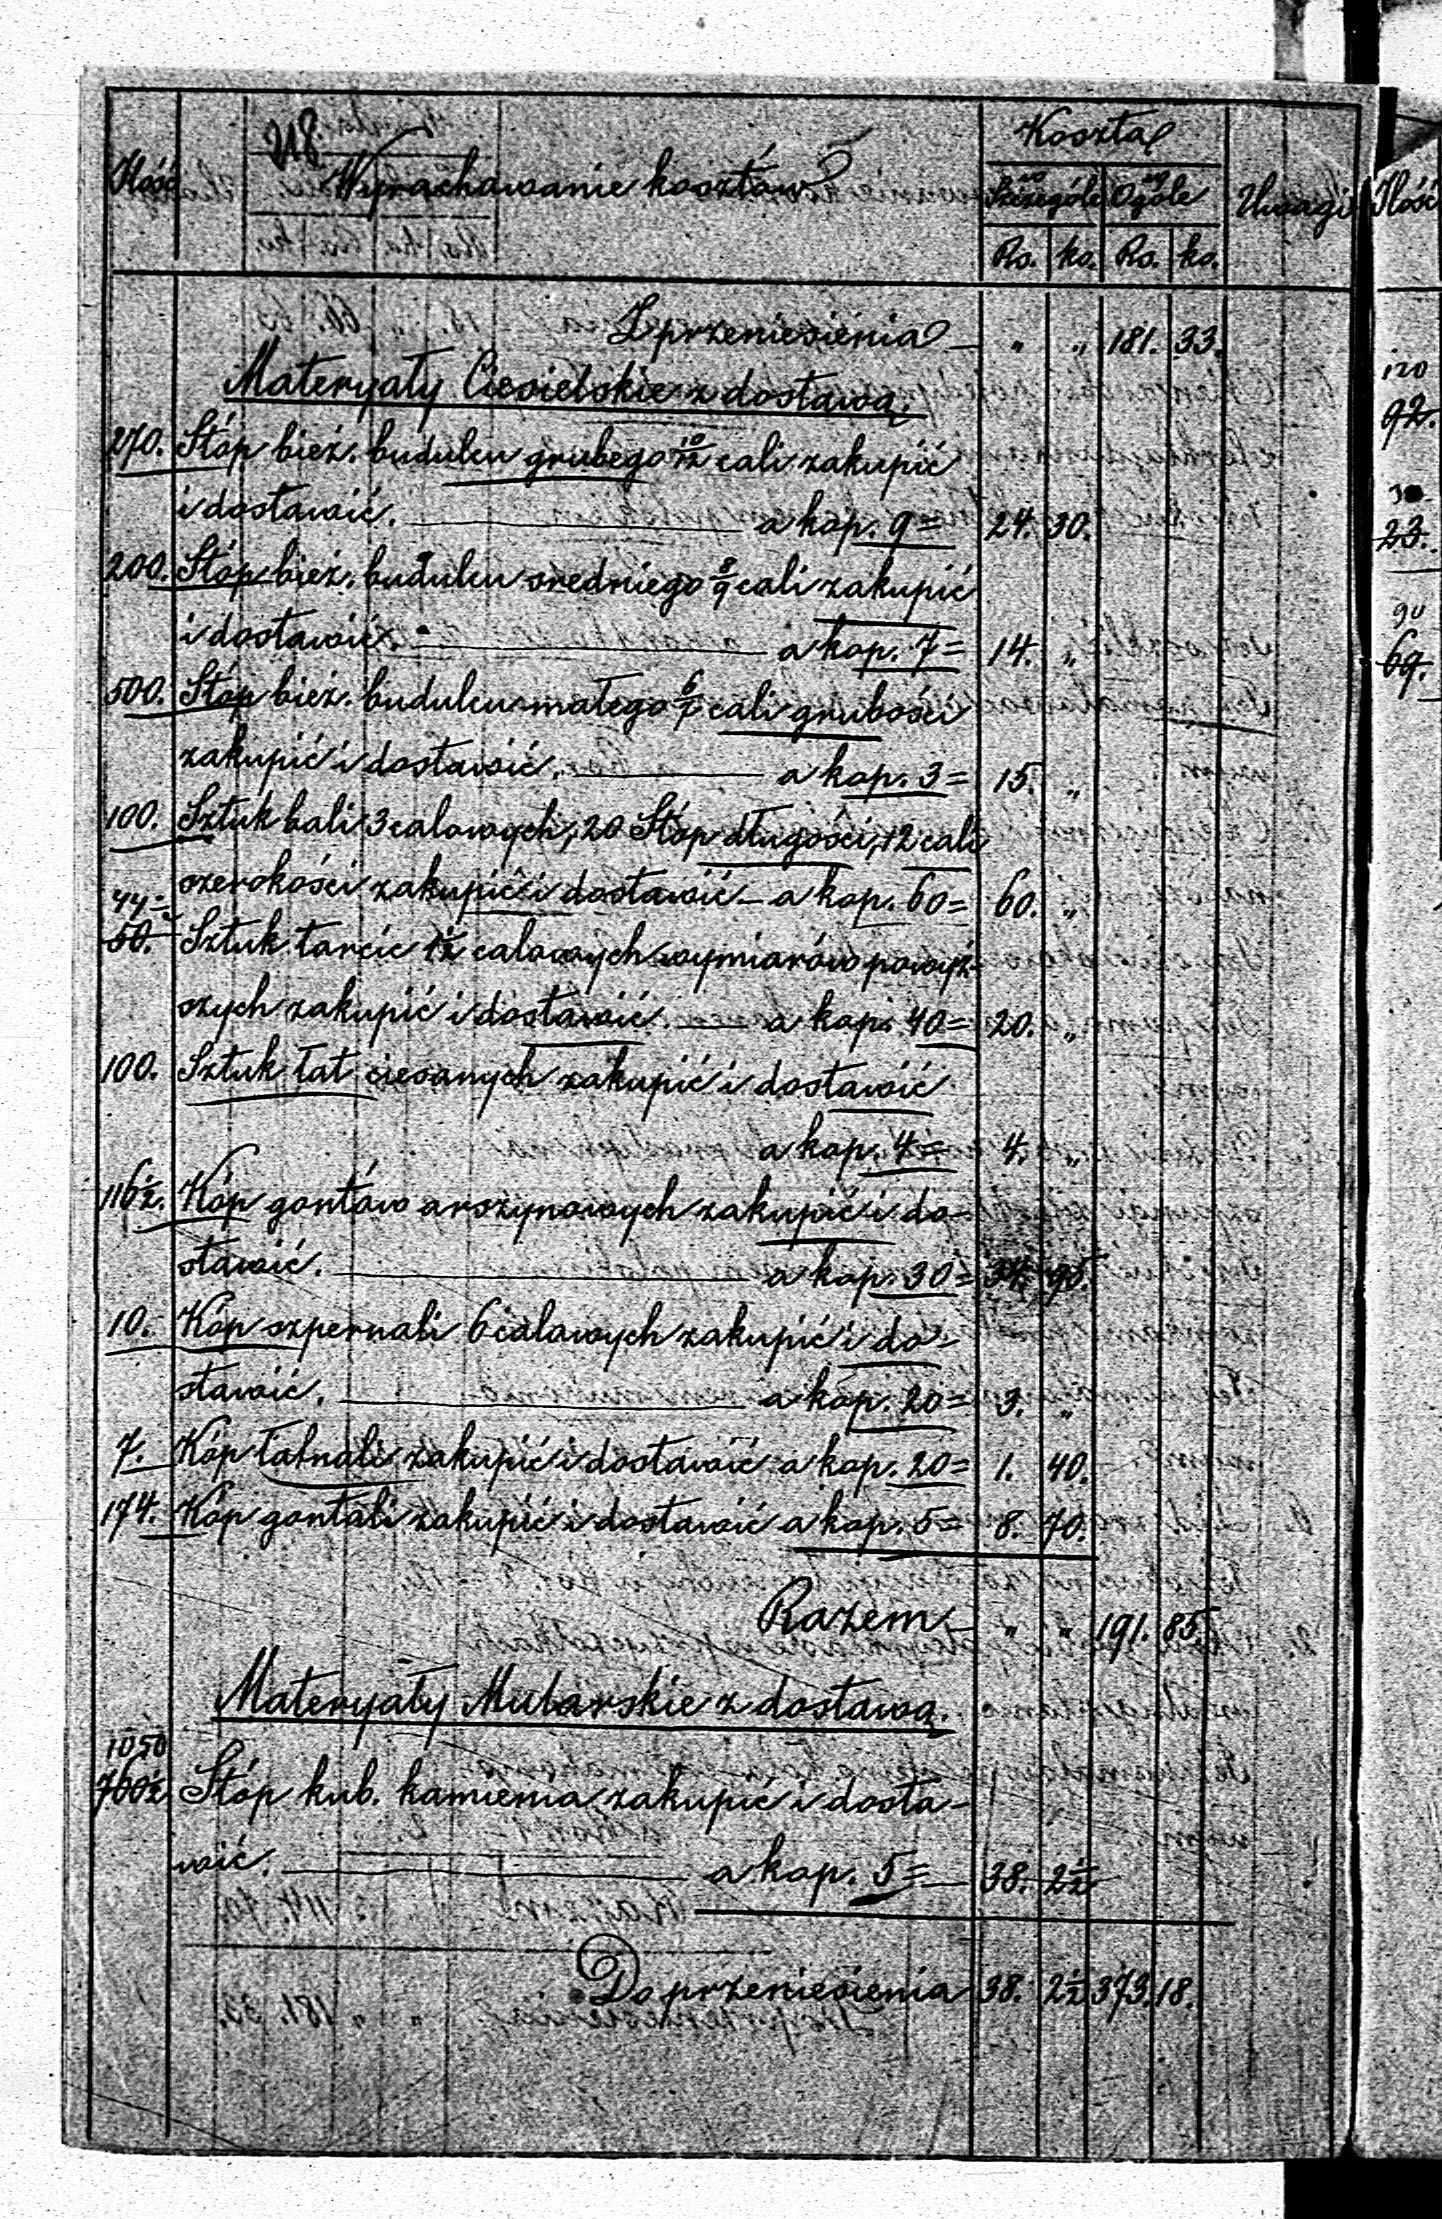 Koszta
Ilość Wyrachowanie kosztów w Szczególe w Ogóle Uwagi
Rs. ko. Rs. ko.
Z przeniesienia — " " 181. 33.
Materyały Ciesielskie z dostawą.
270. Stóp bież. budulcu grubego 10/12 cali zakupić
i dostawić. — a kop. 9 = 24. 30.
200. Stóp bież. budulcu średniego 8/9 cali zakupić
i dostawić. — a kop. 7 = 14. "
500. Stóp bież. budulcu małego 6/7 cali grubości
zakupić i dostawić. — a kop. 3 = 15. "
100. Sztuk bali 3 calowych, 20 Stóp długości, 12 cali
szerokości zakupić i dostawić — a kop. 60 = 60. "
44 =
50. Sztuk tarcic 1½ calowych wymiarów powyż-
szych zakupić i dostawić. — a kop. 40 = 20. "
100. Sztuk łat ciesanych zakupić i dostawić
a kop. 4 = 4. "
116½. Kóp gontów arszynowych zakupić i do-
stawić. — a kop. 30 = 34. 95.
10. Kóp szpernali 6 calowych zakupić i do-
stawić. — a kop. 20 = 3. "
7. Kóp łatnali zakupić i dostawić a kop. 20 = 1. 40.
174. Kóp gontali zakupić i dostawić a kop. 5 = 8. 70.
Razem — " " 191. 85.
Materyały Mularskie z dostawą.
1050
760½ Stóp kub. kamienia zakupić i dosta-
wić. — a kop. 5 = — 38. 2½
Do przeniesienia 38. 2½ 373. 18.
Ilość
120
92.
23.
90
69.